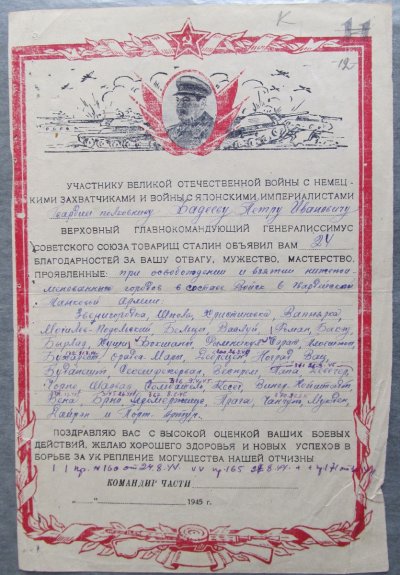 К
-12-
УЧАСТНИКУ ВЕЛИКОЙ ОТЕЧЕСТВЕННОЙ ВОЙНЫ С НЕМЕЦ-
КИМИ ЗАХВАТЧИКАМИ И ВОЙНЫ С ЯПОНСКИМИ ИМПЕРИАЛИСТАМИ
гвардии полковнику Бадееву Петру Ивановичу
ВЕРХОВНЫЙ ГЛАВНОКОМАНДУЮЩИЙ ГЕНЕРАЛИССИМУС
СОВЕТСКОГО СОЮЗА ТОВАРИЩ СТАЛИН ОБЪЯВИЛ ВАМ 24
БЛАГОДАРНОСТЕЙ ЗА ВАШУ ОТВАГУ, МУЖЕСТВО, МАСТЕРСТВО,
ПРОЯВЛЕННЫЕ: при освобождении и взятии нижепо-
городов в составе войск 6 Гвардейской
Танковой Армии.
Звенигородка, Шпола, Христиновка, Вапнярка,
Могилев-Подольский, Бельцы, Васлуй, Роман, Бакэу,
Бырлад, Хуши, Фокшани,
Бухарест, Дебрецен, Ноград, Вац,
Будапешт, Папа, Девечер,
Чорно, Шарвар, Кёсег, Винер-Нойштадт
Вена, Брно, Прага, Чанчунь, Мукден,
Дайрен и Порт-Артур.
ПОЗДРАВЛЯЮ ВАС С ВЫСОКОЙ ОЦЕНКОЙ ВАШИХ БОЕВЫХ
ДЕЙСТВИЙ, ЖЕЛАЮ ХОРОШЕГО ЗДОРОВЬЯ И НОВЫХ УСПЕХОВ В
БОРЬБЕ ЗА УКРЕПЛЕНИЕ МОГУЩЕСТВА НАШЕЙ ОТЧИЗНЫ
пр. №160 от 24.8.44 vv пр 165
КОМАНДИР ЧАСТИ
1945 г.